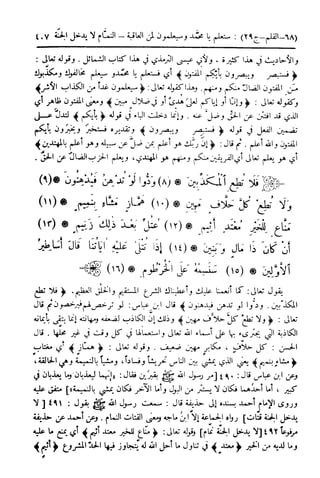 (٦٨-القلم-ج٢٩) : ستعلم يا محمد وسيعلمون لمن العاقبة - النمّام لا يدخل الجنّة ٤٠٧
والأحاديث في هذا كثيرة . ولأبي عيسى الترمذي في هذا كتاب الشمائل . وقوله تعالى :
﴿ فستبصر ويبصرون بأيّكم المفتون ﴾ أي فستعلم يا محمد وسيعلم مخالفوك ومكذبوك
مَن المفتون الضالّ منكم ومنهم. وهذا كقوله تعالى: ﴿سيعلمون غداً من الكذّاب الأشر﴾
وكقوله تعالى: ﴿وإنّا أو إيّاكم لعلى هدى أو في ضلال مبين﴾ ومعنى المفتون ظاهر أي
الذي قد افتتن عن الحقّ وضلّ عنه . وإنما دخلت الباء في قوله ﴿بأيّكم﴾ لتدلّ على
تضمين الفعل في قوله ﴿ فستبصر ويبصرون ﴾ وتقديره فستخبر ويخبرون بأيّكم
المفتون والله أعلم . ثم قال : ﴿ إن ربك هو أعلم بمن ضلّ عن سبيله وهو أعلم بالمهتدين﴾
أي هو يعلم تعالى أي الفريقين منكم ومنهم هو المهتدي، ويعلم الحزب الضالّ عن الحقّ.
﴿ فَلَا تُطِعِ ٱلْمُكَذِّبِينَ * (٨) وَدُّوا۟ لَوْ تُدْهِنُ فَيُدْهِنُونَ * (٩)
وَلَا تُطِعْ كُلَّ حَلَّافٍ مَّهِينٍ * (١٠) هَمَّازٍ مَّشَّآءٍ بِنَمِيمٍ * (١١)
مَّنَّاعٍ لِّلْخَيْرِ مُعْتَدٍ أَثِيمٍ * (١٢) عُتُلٍّ بَعْدَ ذَٰلِكَ زَنِيمٍ * (١٣)
أَن كَانَ ذَا مَالٍ وَبَنِينَ * (١٤) إِذَا تُتْلَىٰ عَلَيْهِ ءَايَٰتُنَا قَالَ أَسَٰطِيرُ
ٱلْأَوَّلِينَ * (١٥) سَنَسِمُهُ عَلَى ٱلْخُرْطُومِ * (١٦) ﴾
يقول تعالى: كما أنعمنا عليك وأعطيناك الشرع المستقيم والخلق العظيم. ﴿ فلا تطع
المكذّبين. ودّوا لو تدهن فيدهنون﴾ قال ابن عباس: لو ترخص لهم فيرخصون ثم قال
تعالى: ﴿ ولا تطع كل حلاف مهين ﴾ وذلك إن الكاذب لضعفه ومهانته إنما يتقي بأيمانه
الكاذبة التي يجترىء بها على أسماء الله تعالى واستعمالها في كل وقت في غير محلها. قال
الحسن : كل حلّاف، مكابر مهين ضعيف . وقوله تعالى : ﴿ همّاز ﴾ أي مغتاب
﴿ مشّاء بنميم ﴾ يعني الذي يمشي بين الناس تحريشاً وفساداً، ومشياً بالنميمة وهي الحالقة،
وعن ابن عباس قال: ٤٩٠ [مر رسول الله ﷺ بقبرين فقال: وإنهما ليعذبان وما يعذبان في
كبير، أما أحدهما فكان لا يستتر من البول وأما الآخر فكان يمشي بالنميمة] متفق عليه
وروى الإمام أحمد بسنده إلى حذيفة قال : سمعت رسول الله ﷺ يقول : ٤٩١ [ لا
يدخل الجنة قتّات] رواه الجماعة إلاّ ابن ماجه ومعنى القتات النمام . وعن أحمد عن حذيفة
مرفوعاً ٤٩٢ [ لا يدخل الجنة نمّام] وقوله تعالى: ﴿ منّاع للخير معتد أثيم ﴾ أي يمنع ما عليه
وما لديه من الخير ﴿ معتد ﴾ في تناول ما أحل الله له يتجاوز فيها الحدّ المشروع ﴿أثيم﴾